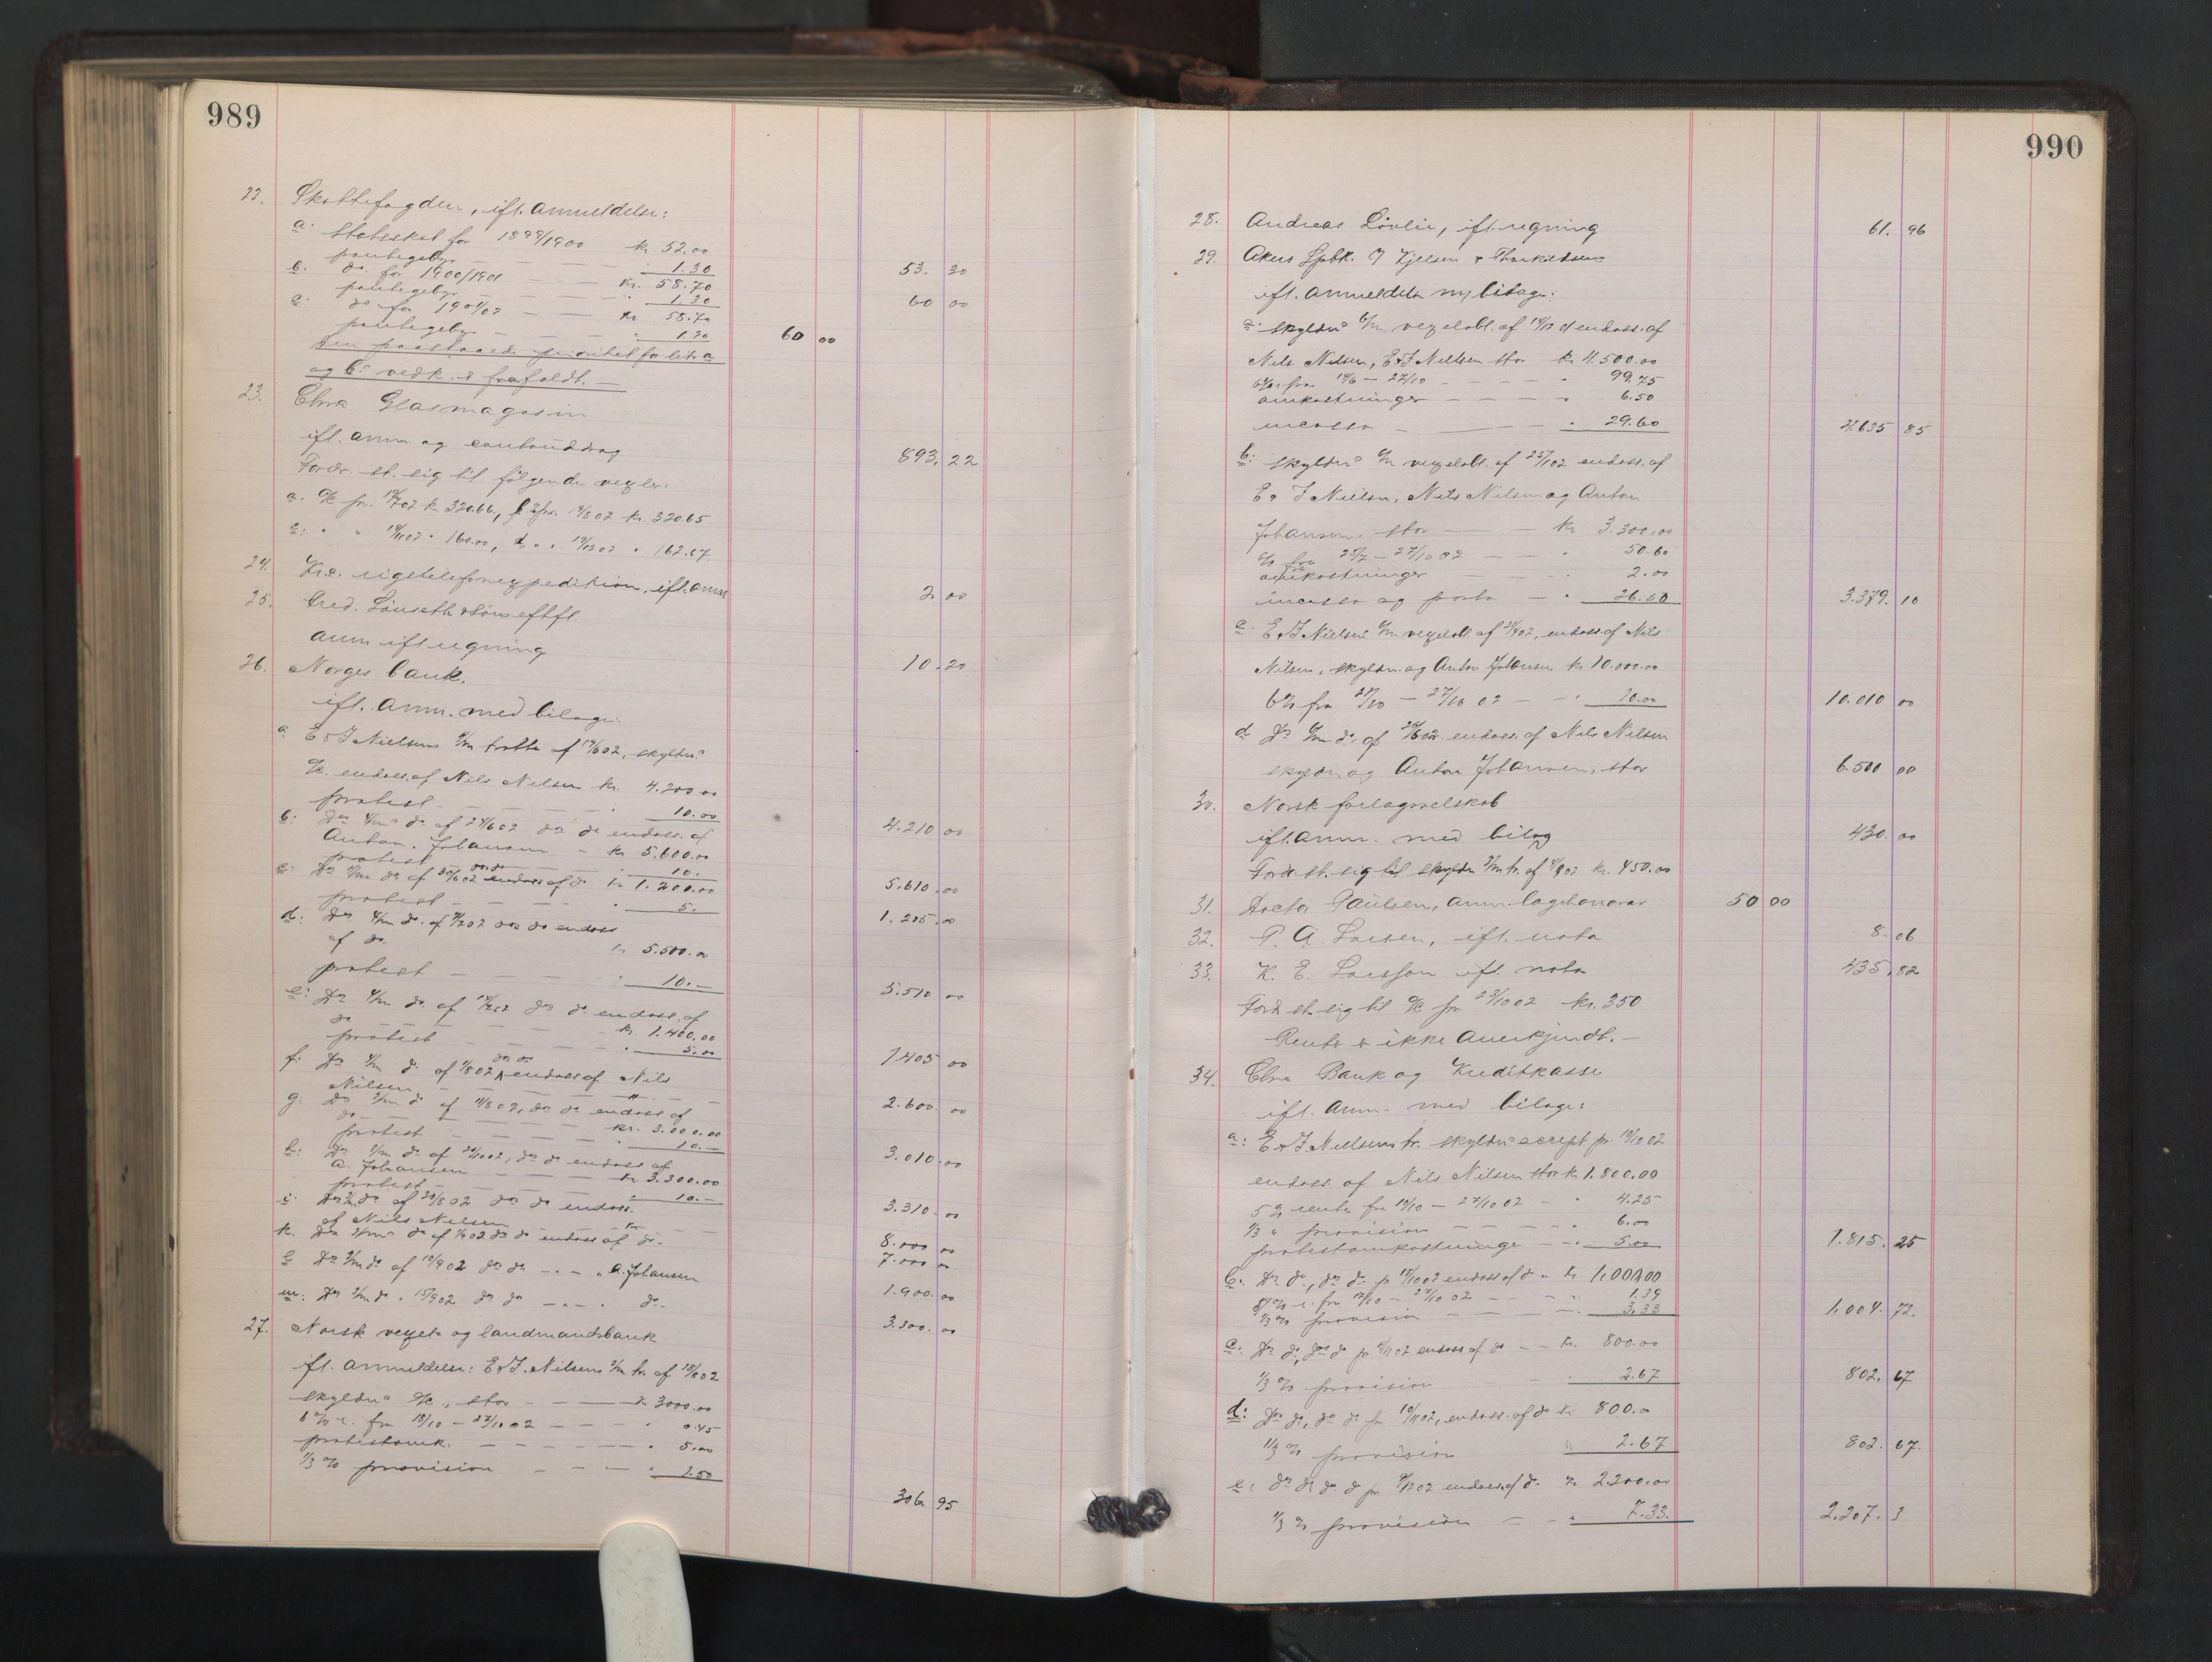 989
22. Skattefogden, ifl. anmeldelse:
a: statsskat for 1899/1900 kr. 52.00
pantegebyr — — — " 1.30 53. 30
b. do. for 1900/1901 — — kr. 58.70
pantegebyr — — — " 1.30 60 00
c. do for 1901/02 — — kr 58.70
pantegebyr — — " 1.30 60 00
Den paastaaede prioritet for litra a
og b. vedk. er frafaldt. —
23. Chra Glasmagasin
ifl. anm. og contoudrag 893. 22
Fordr. st. sig til følgende vexler:
a. pr. 02 kr 320.66, b. pr. 02 kr. 320.65
c: " " 02 " 160.00, d " " 02 " 162.67.
24. Kr.a. rigstelefonexpedition, ifl. anm 2 00
25. Fred. Lønseth & Søns eftfl.
anm ifl regning 10. 20
26. Norges bank.
ifl. Anm. med bilage:
a E & J Nielsens tratte af 02, skyldn.s
endoss. af Nils Nilsen kr. 4.200.00
protest — — — " 10.00 4.210 00
b: do. do af 02 do do endoss. af
Anton Johansen — kr 5.600.00
protest — — — " 10. 5.610. 00
c: do do af 02 endoss af do kr 1.200.00
protest — — — " 5. 1.205. 00
d: do do. af 02 do do endoss
af do kr 5.500.00
protest — — — " 10.— 5.510 00
e: do do. af 02 do do endoss. af
do — — — kr. 1.400.00
protest — — — " 5.00 1.405 00
f: do do af 02 do do endoss af Nils
Nilsen — — — 2.600. 00
g: do do af 02, do do endoss af
do — — — kr. 3.000.00
protest — — — " 10.— 3.010. 00
h: do do af 02, do do endoss af
A. Johansen — — kr. 3.300.00
protest — — — " 10.— 3.310. 00
i: do do af 02 do do endoss.
af Nils Nilsen — — 8.000 00
k. do do af 02 do do endoss af do. 7.000 00
l do do af 02 do do — " — " A. Johansen 1.900. 00
m: do do " 15/9 02 do do — " — " do. 3.300. 00
27. Norsk vexel- og landmandsbank
ifl. anmeldelse: E & J. Nilsens tr. af 18/8 02
skyldn.s , stor — — kr 3000.00
6 % r. fra 18/10 – 27/10 02 — — " 0.45
protestomk. — — — " 5.00
1/3 % provision — — — " 1.50
306 95
990
28. Andreas Løvlie, ifl. regning 61. 96
29. Akers Spbk. Kjelsen & Thorkildsen
ifl. anmeldelse m/ bilage:
a: skyldn.s vexelobl. af endoss. af
Nils Nilsen, E & J Nielsen stor kr 4.500.00
6 % r fra — 27/10 — — — " 99.75
omkostninger — — — " 6.50
incasso — — — " 29.60 4.635 85
b: skyldn.s vexelobl. af 25/7 02 endoss. af
E & J Nielsen, Nils Nilsen og Anton
Johansen, stor — — kr 3.300.00
% fra 25/7 – 27/10 02 — — " 50.60
omkostninger — — " 2.00
incasso og porto — " 26.50 3.379. 10
c: E & J Nielsens vexelobl af 02, endoss af Nils
Nilsen, skyldn. og Anton Johansen kr 10.000.00
6 % fra — 27/10 02 — " 10.00 10.010 00
d do do. af 02. endoss. af Nils Nilsen
skyldn og Anton Johansen, stor 6.500 00
30. Norsk forlagsselskab
ifl. anm. med bilag 430. 00
Fordr. st. sig til skyldn tr. af 02 kr. 450.00
31. Doctor Paulsen, anm. lægehonorar 50 00
32. P. A. Larsen, ifl. nota 8. 06
33. K. E. Larsson ifl. nota 435. 82
Ford st. sig til pr 23/10 02 kr. 350
Rente er ikke anerkjendt. —
34. Chra Bank og Kreditkasse
ifl. Anm. med bilage:
a: E & J Nielsens tr. skyldn.s accept pr. 10/10 02
endoss. af Nils Nilsen stor kr 1.800.00
5 % rente fra 10/10 – 27/10 02 — " 4.25
1/3 " provision — — — " 6.00
protestomkostninger — — " 5.00 1.815. 25
b: do do, do do pr 17/10 02 endoss af do " kr 1.000.00
5 % r. fra 17/10 – 27/10 02 — — " 1.39
1/3 % provision — — — " 3.33 1.004. 72.
c: do do, do do pr 02 endoss af do — — kr. 800.00
1/3 % provision — — " 2.67 802. 67
d: do do, do do pr 02, endoss. af do kr 800.00
1/3 % provision " 2.67 802. 67.
e: do do do do pr 02 endoss. af do. kr 2.200.00
1/3 % provision — — " 7.33. 2.207. 3